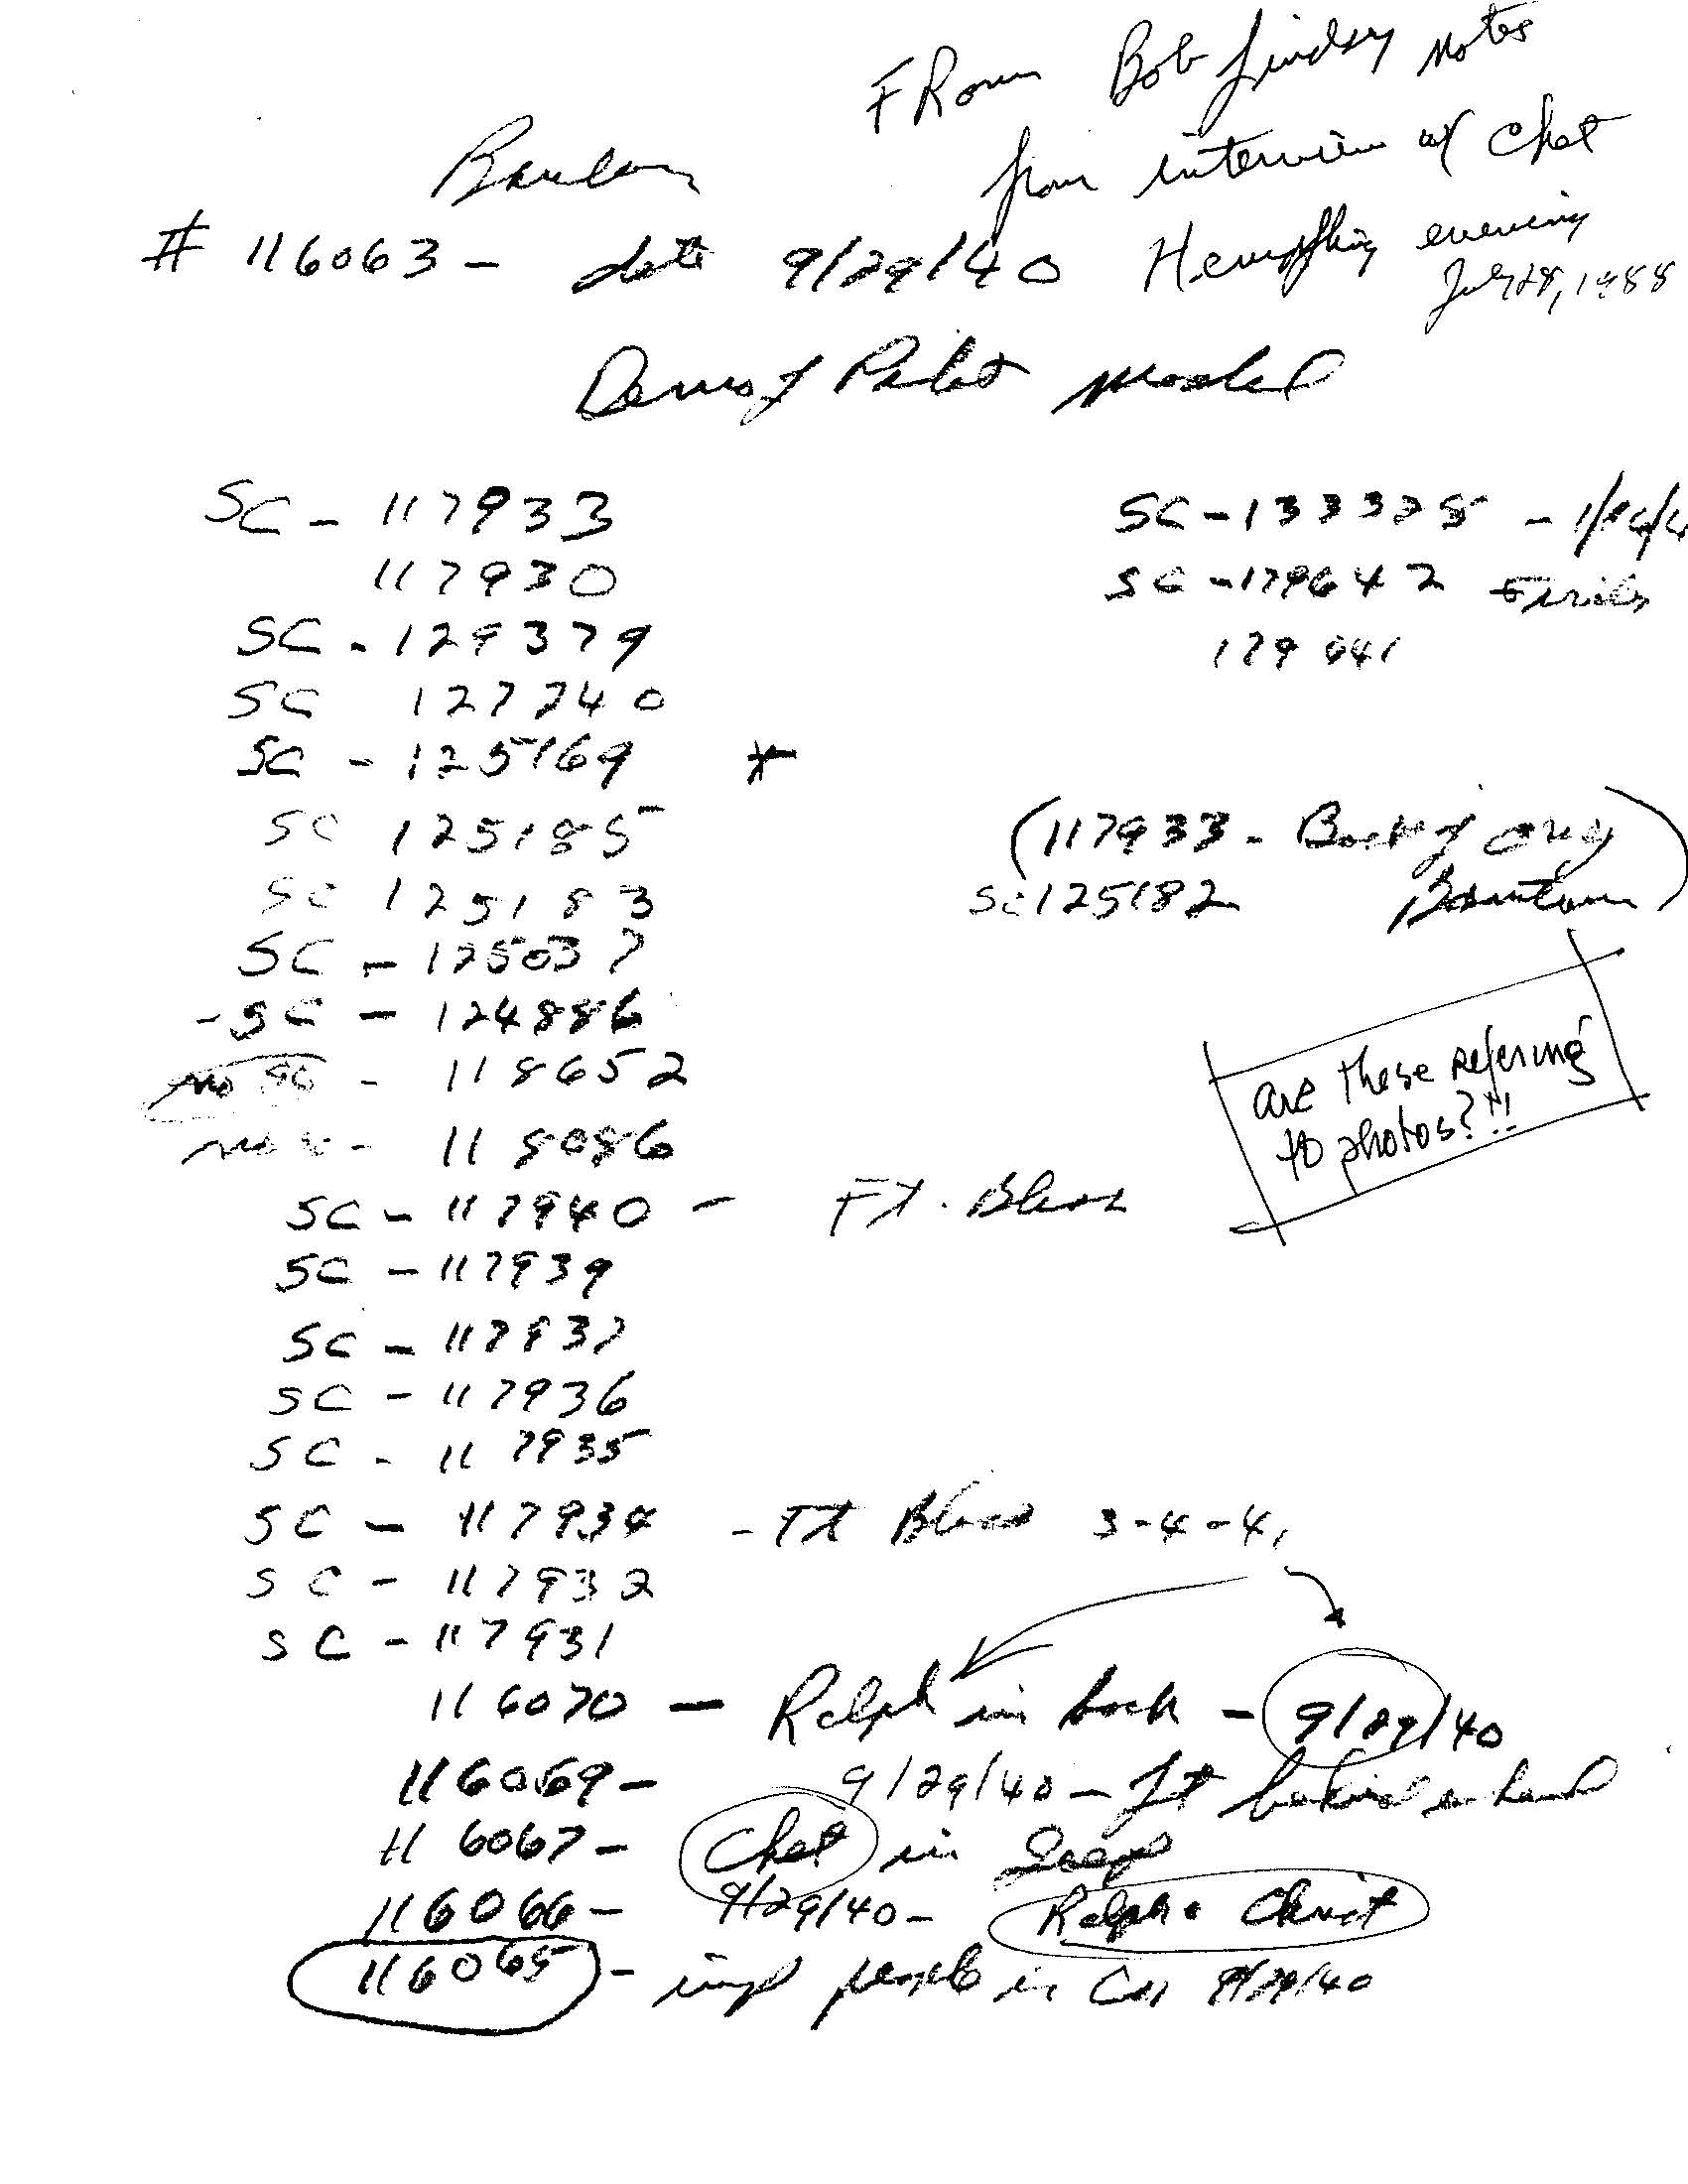 FRom Bob Lindsey notes
from interview w/ Chet
Hempfling evening
July 28, 1988
# 116063 - date 9/29/40
Demo of Pilot Model
SC - 117933
117930
SC - 129379
SC 127740
SC - 125169 *
SC 125185
SC 125183
SC - 125037
- SC - 124886
no SC - 118652
no - 118086
SC - 117940 - Ft. Bliss
SC - 117939
SC - 117937
SC - 117936
SC - 117935
SC - 117934 - Ft Bliss 3-4-41
SC - 117932
SC - 117931
116070 - Ralph in back - 9/29/40
116069 - 9/29/40 - Ft
116067 - Chet in Jeep
116066 - 9/29/40 - Ralph & Christ
116065 - imp people in Car 9/29/40
SC - 133328
SC - 179642
179641
(117933 - Back of orig
Bantam)
SC 125182
are these refering
to photos?!!